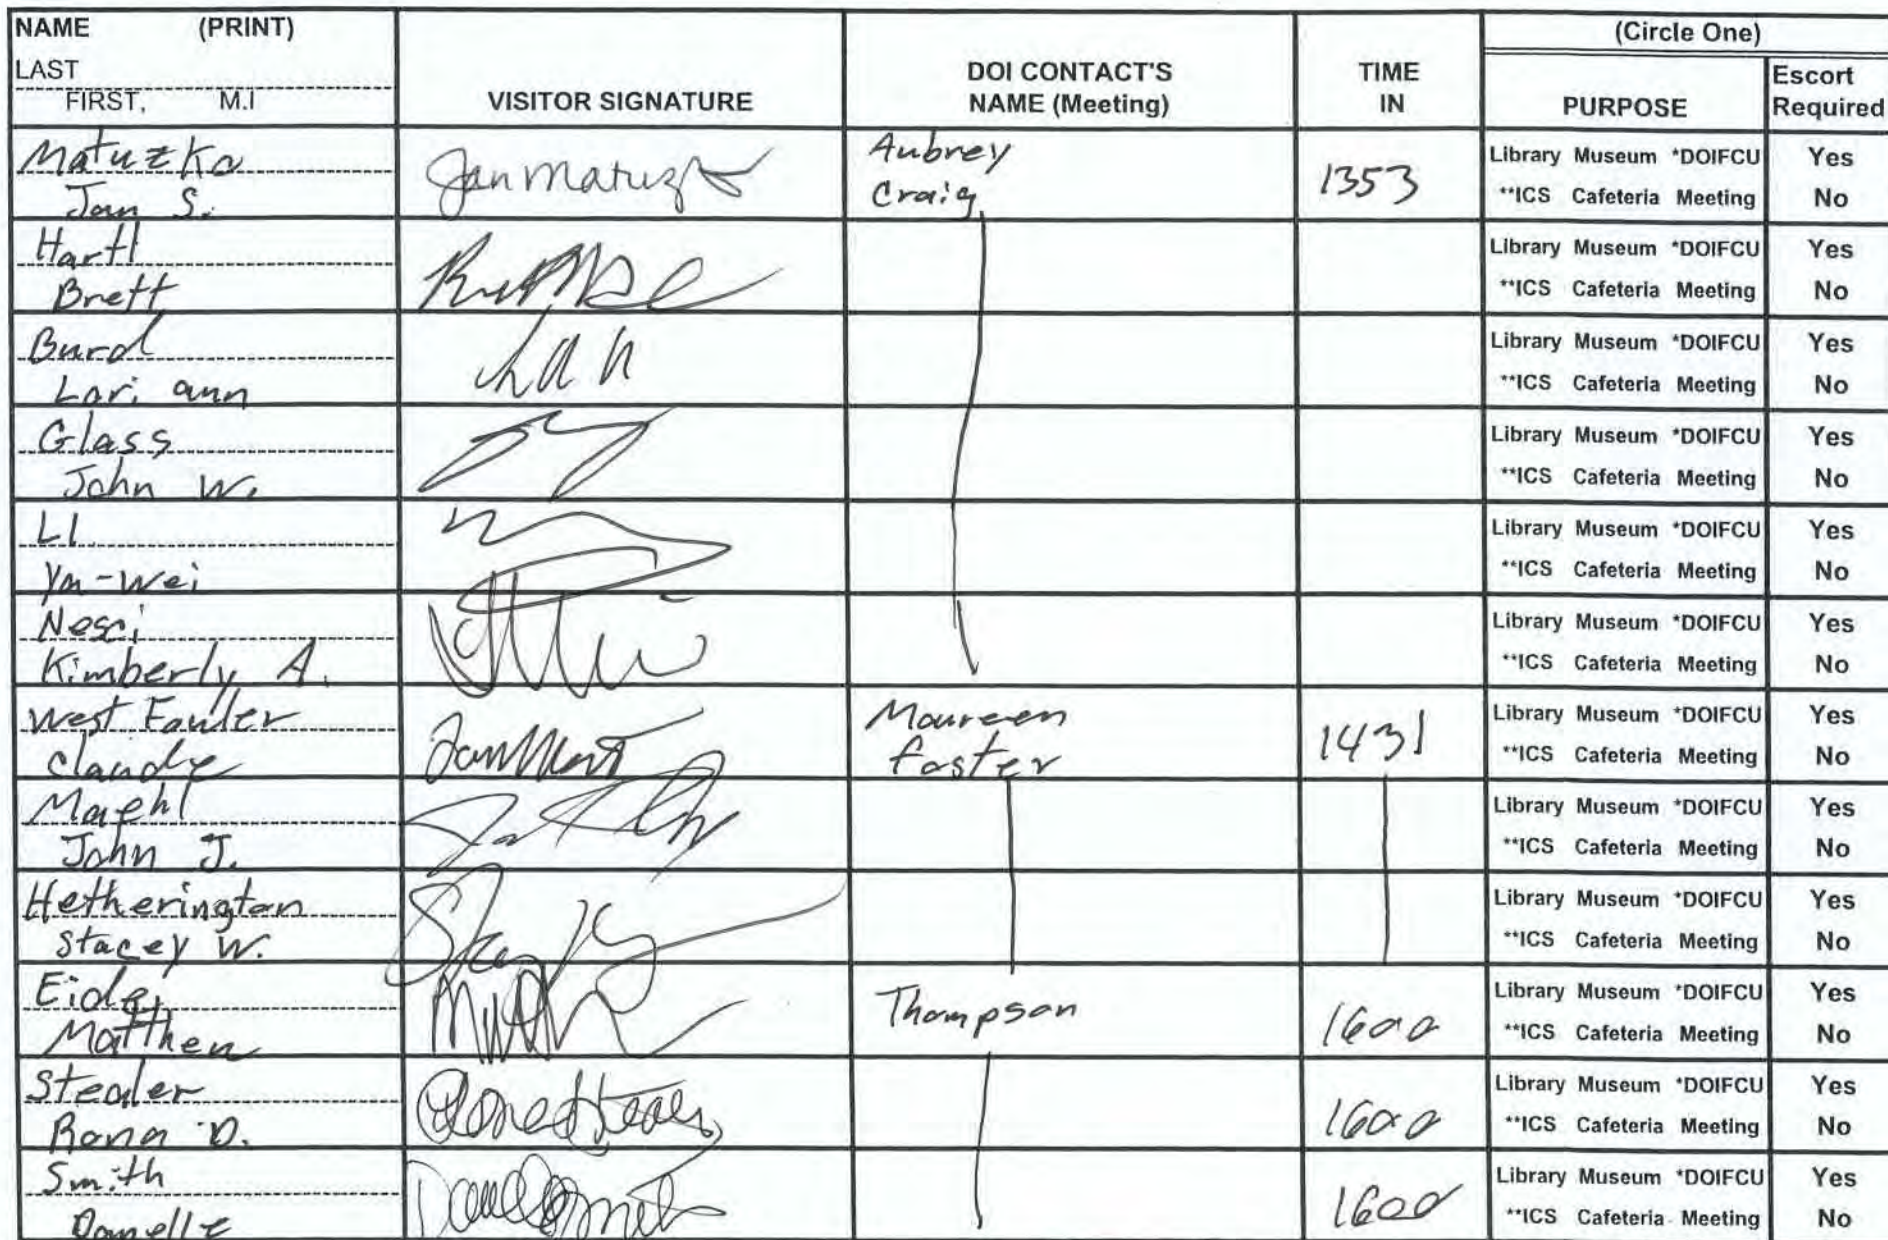 NAME (PRINT)
LAST
FIRST, M.I
VISITOR SIGNATURE
DOI CONTACT'S
NAME (Meeting)
TIME
IN
(Circle One)
PURPOSE
Escort
Required
Matuzko
Jan S.
Jan Matuzko
Aubrey
Craig
1353
Library Museum *DOIFCU Yes
**ICS Cafeteria Meeting No
Hartl
Brett
Library Museum *DOIFCU Yes
**ICS Cafeteria Meeting No
Burd
Lori ann
Library Museum *DOIFCU Yes
**ICS Cafeteria Meeting No
Glass
John W.
Library Museum *DOIFCU Yes
**ICS Cafeteria Meeting No
LI
Ya-Wei
Library Museum *DOIFCU Yes
**ICS Cafeteria Meeting No
Nesci
Kimberly A.
Library Museum *DOIFCU Yes
**ICS Cafeteria Meeting No
West Fowler
Claudy
Maureen
Foster
1431
Library Museum *DOIFCU Yes
**ICS Cafeteria Meeting No
Maehl
John J.
Library Museum *DOIFCU Yes
**ICS Cafeteria Meeting No
Hetherington
Stacey W.
Library Museum *DOIFCU Yes
**ICS Cafeteria Meeting No
Matthew
Thompson
1600
Library Museum *DOIFCU Yes
**ICS Cafeteria Meeting No
Steader
Rona D.
1600
Library Museum *DOIFCU Yes
**ICS Cafeteria Meeting No
Smith
Danelle
Danelle Smith
1600
Library Museum *DOIFCU Yes
**ICS Cafeteria Meeting No